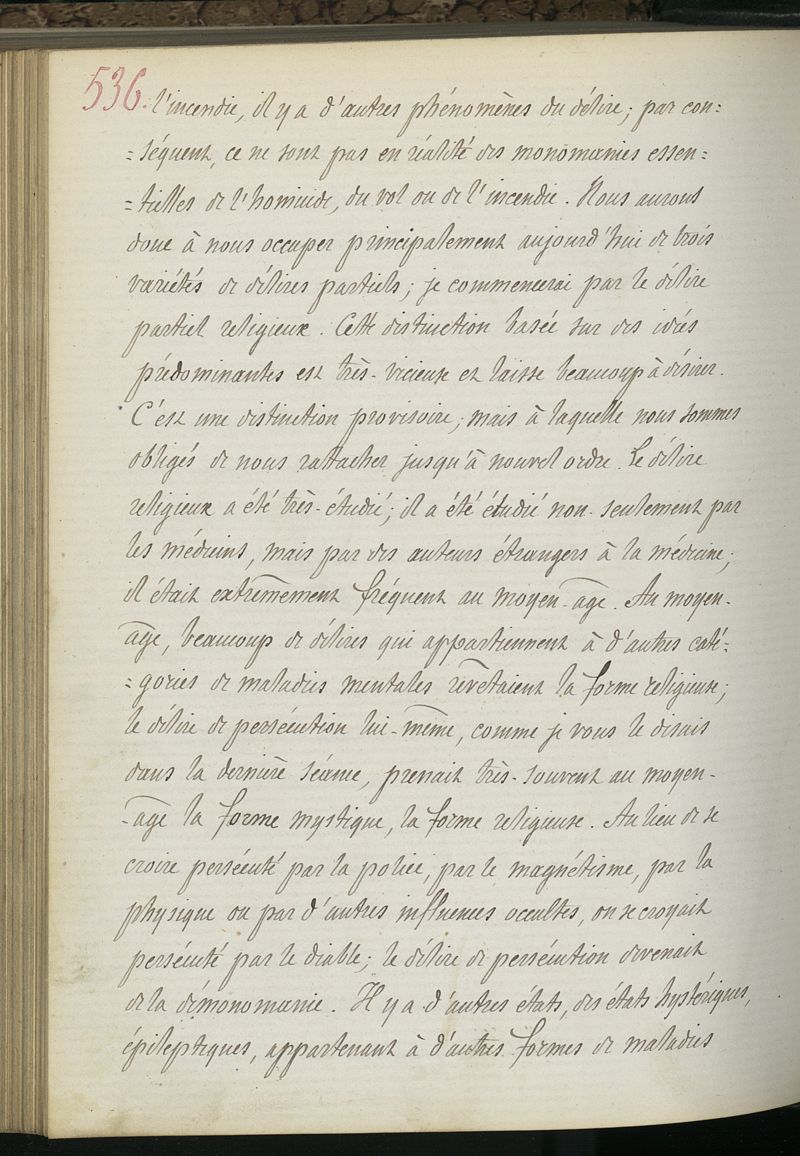 536. l'incendie, il y a d'autres phénomènes du délire; par con=
=séquent, ce ne sont pas en réalité des monomanies essen=
=tielles de l'homicide, du vol ou de l'incendie. Nous aurons
donc à nous occuper principalement aujourd'hui de trois
variétés de délires partiels; je commencerai par le délire
partiel religieux. Cette distinction basée sur des idées
prédominantes est très-vicieuse et laisse beaucoup à désirer.
C'est une distinction provisoire; mais à laquelle nous sommes
obligés de nous rattacher jusqu'à nouvel ordre. Le délire
religieux a été très-étudié; il a été étudié non-seulement par
les médecins, mais par des auteurs étrangers à la médecine;
il était extrêmement fréquent au moyen-âge. Au moyen-
âge, beaucoup de délires qui appartiennent à d'autres caté=
=gories de maladies mentales revêtaient la forme religieuse;
le délire de persécution lui-même, comme je vous le disais
dans la dernière séance, prenait très-souvent au moyen-
-âge la forme mystique, la forme religieuse. Au lieu de se
croire persécuté par la police, par le magnétisme, par la
physique ou par d'autres influences occultes, on se croyait
persécuté par le diable; le délire de persécution devenait
de la démonomanie. Il y a d'autres états, des états hystériques,
épileptiques, appartenant à d'autres formes de maladies